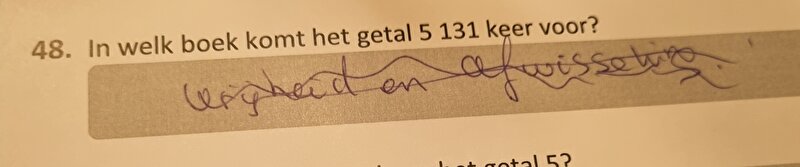 48. In welk boek komt het getal 5 131 keer voor?
vrijheid en afwisseling.
getal 5?